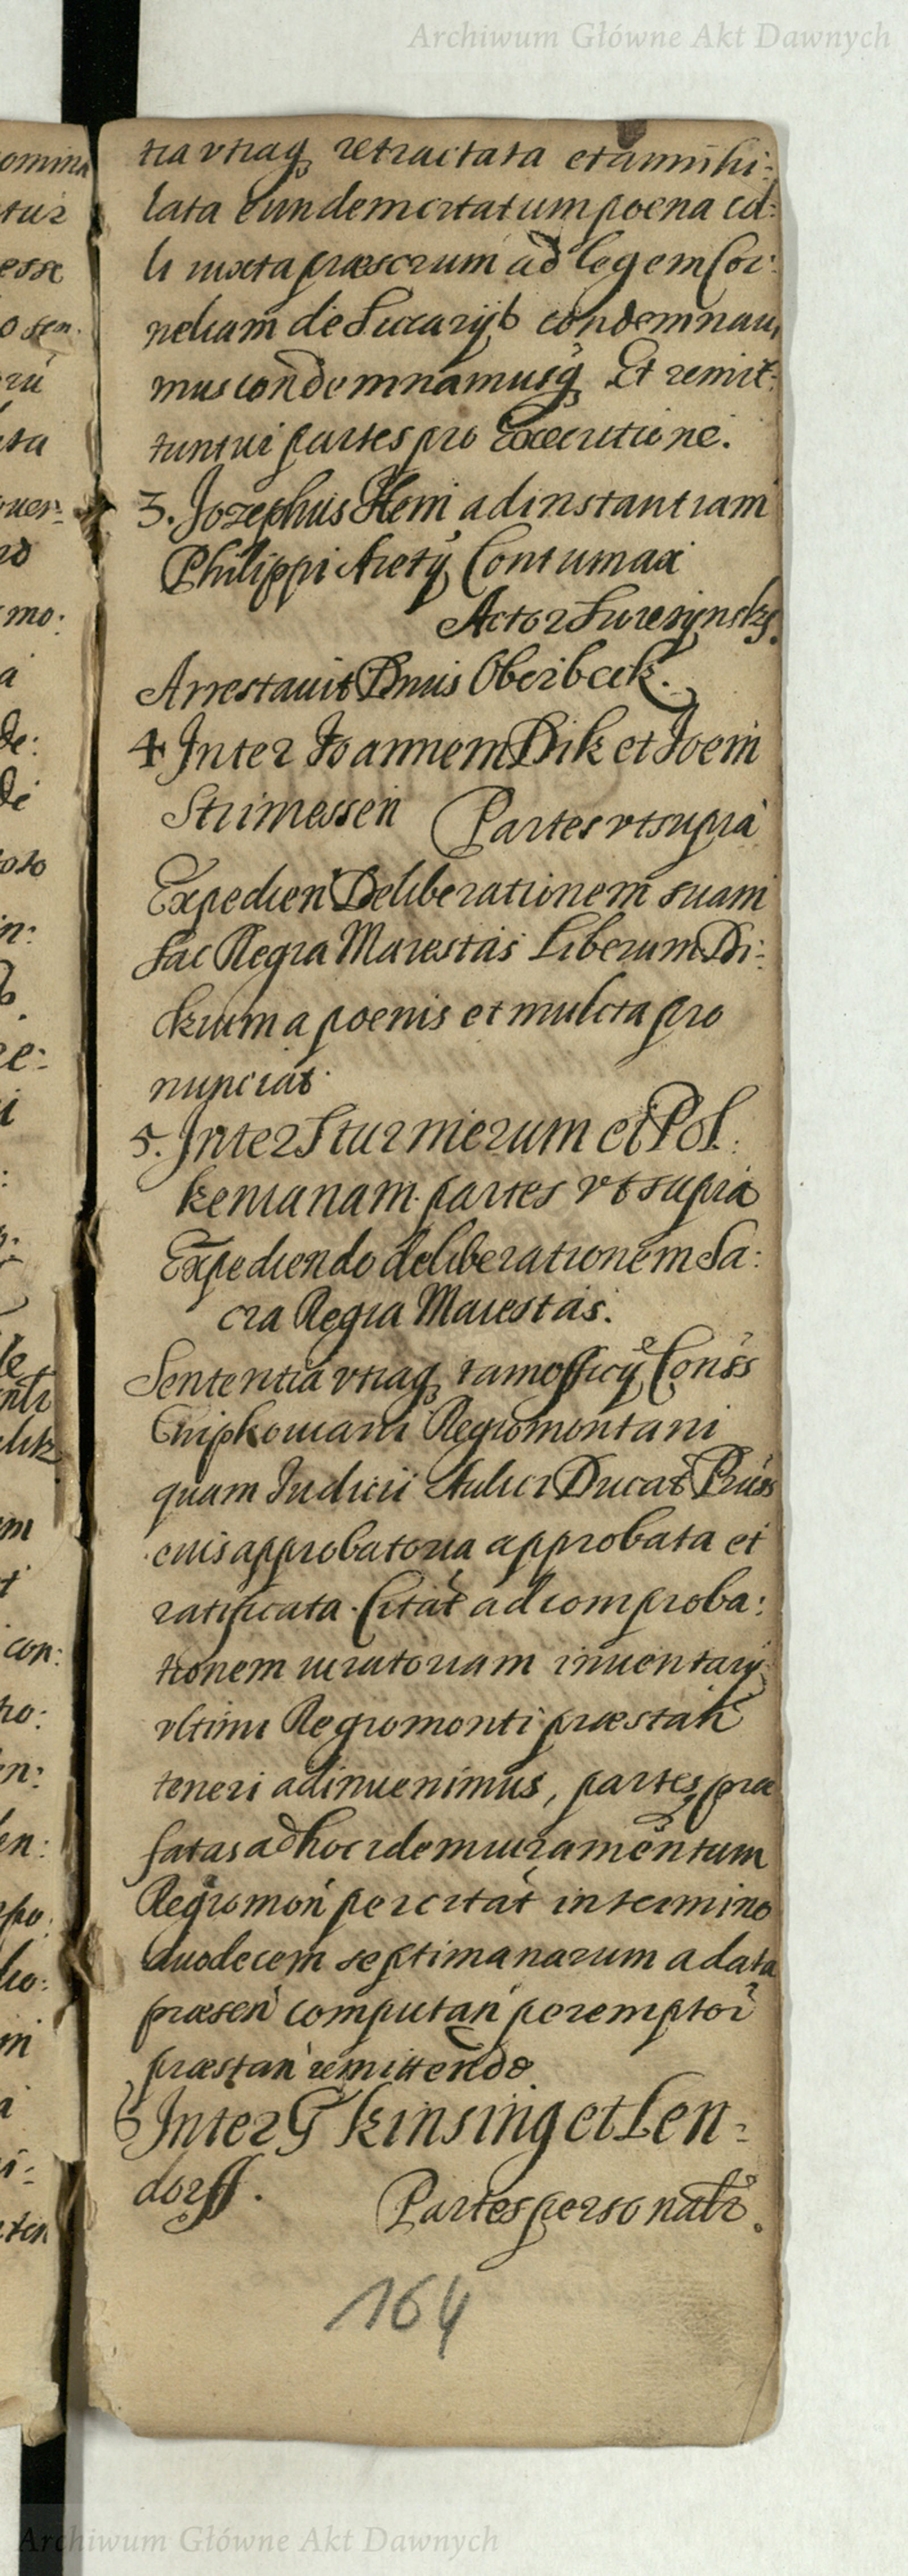 Archiwum Główne Akt Dawnych
tia vtraq; retractata et annihi:
lata eundem citatum poena col:
li iuxta præscrum ad legem Cor:
neliam de Sicarijs condemnaui
mus condemnamusq; Et remit:
tuntur partes pro Executione.
3. Jozephus Heni ad instantiam
Philippi Contumax
Actor
Arrestauit Dnus Oberbeck.
4 Inter Joannem Dik et Joem
Strimessen Partes vt supra
Expedien Deliberationem suam
Sac Regia Maiestas Liberum Di:
kium a poenis et mulcta pro
nunciat.
5. Inter Sturmerum et Pol:
kenianam. partes vt supra
Expediendo deliberationem Sa:
cra Regia Maiestas.
Sententia vtraq; tam officij Conss
Regiomontani
quam Iudicii Aulici Ducat Pruss
eius approbatoria approbata et
ratificata. Citat ad comproba:
tionem iuratoriam inuentarij
vltimi Regiomonti præstan
teneri adinuenimus, partes præ
fatas ad hoc idem iuramentum
Regiomon per citat in termino
duodecem septimanarum a data
præsen computan peremptor
præstan remittendo
6 Inter G kinsing et Len-
dorff. Partes personalr.
164
Archiwum Główne Akt Dawnych